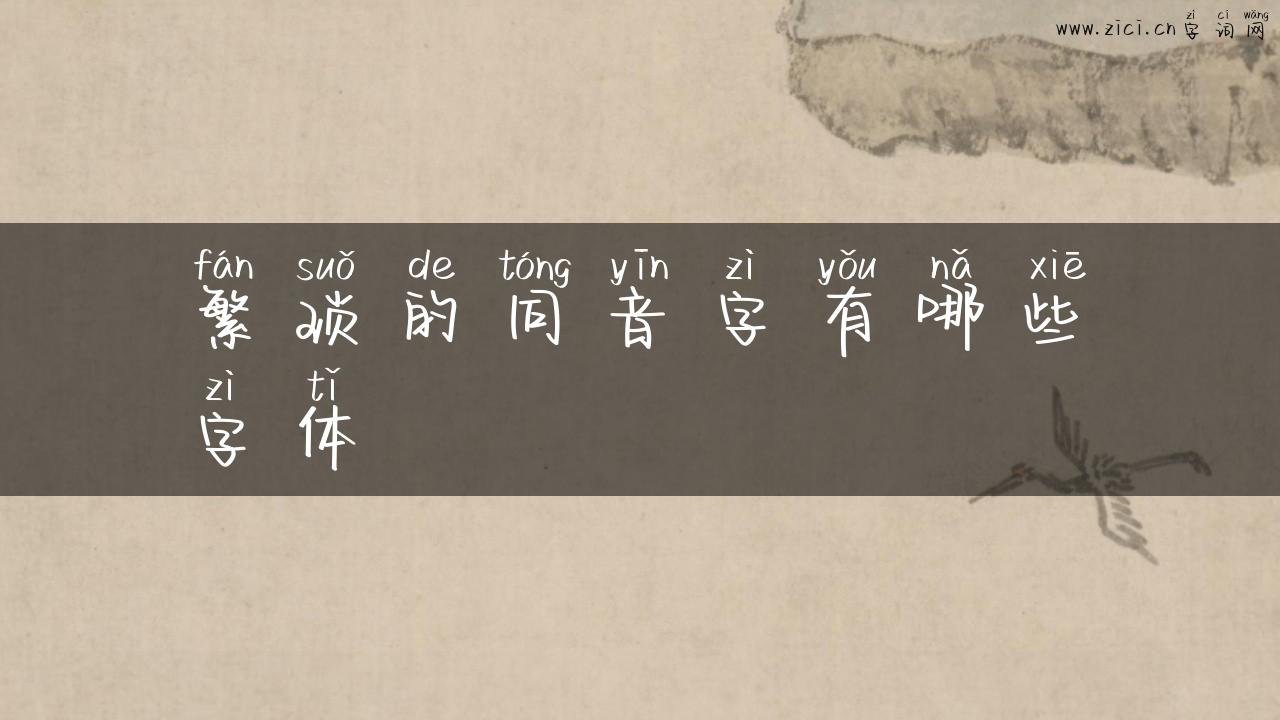 zì cí wǎng
www.zici.cn 字 词 网
fán suǒ de tóng yīn zì yǒu nǎ xiē
繁 琐 的 同 音 字 有 哪 些
zì tǐ
字 体